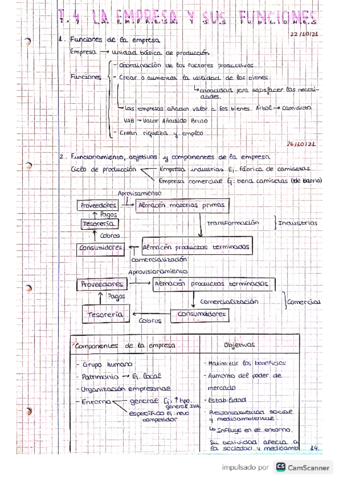 T.4 LA EMPRESA Y SUS FUNCIONES
22/10/21
1. Funciones de la empresa
Empresa → unidad básica de producción
- Coordinación de los factores productivos
Funciones - Crear o aumentar la utilidad de los bienes
↳ capacidad para satisfacer las necesidades.
- Las empresas añaden valor a los bienes. Árbol → camisetas
VAB → Valor Añadido Bruto
- Crean riqueza y empleo
26/10/21
2. Funcionamiento, objetivos y componentes de la empresa
Ciclo de producción Empresa industrial Ej. fábrica de camisetas
Empresa comercial Ej. tienda camisetas (de barrio)
Aprovisionamiento
Proveedores → Almacén materias primas
↑ Pagos
Tesorería transformación Industrias
↑ Cobros
Consumidores ← Almacén productos terminados
comercialización
Aprovisionamiento
Proveedores → Almacén productos terminados
↑ Pagos Comercialización Comercial
Tesorería ← Consumidores
Cobros
Componentes de la empresa
- Grupo humano
- Patrimonio → Ej. local
- Organización empresarial
- Entorno general Ej. ↑ tipo general IVA
específico Ej. nuevo competidor
Objetivos
- Maximizar los beneficios
- Aumento del poder de mercado
- Estabilidad
- Responsabilidad social y medioambiental
↳ Influye en el entorno.
Su actividad afecta a
la sociedad y medioamb. 14.
impulsado por CS CamScanner